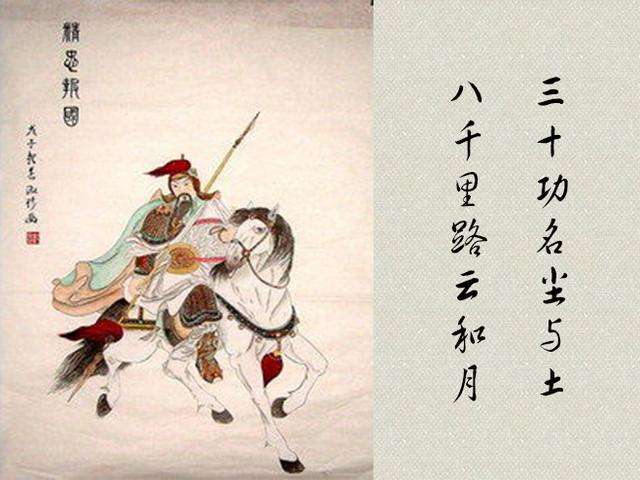 精忠報國
戊子
三十功名尘与土
八千里路云和月